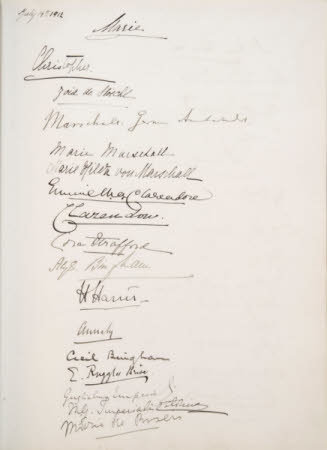 July 14th 1912
Marie
Christopher.
de Stoeckl
Marschall. German
Marie Marschall
Marie Hilda von Marschall
Emmeline Clarendon
Clarendon.
Cora Strafford
Alys Bingham
H Harris
Annaly
Cecil Bingham
E. Ruggles Brise
Guglielmo Imperiali
Imperiali
de